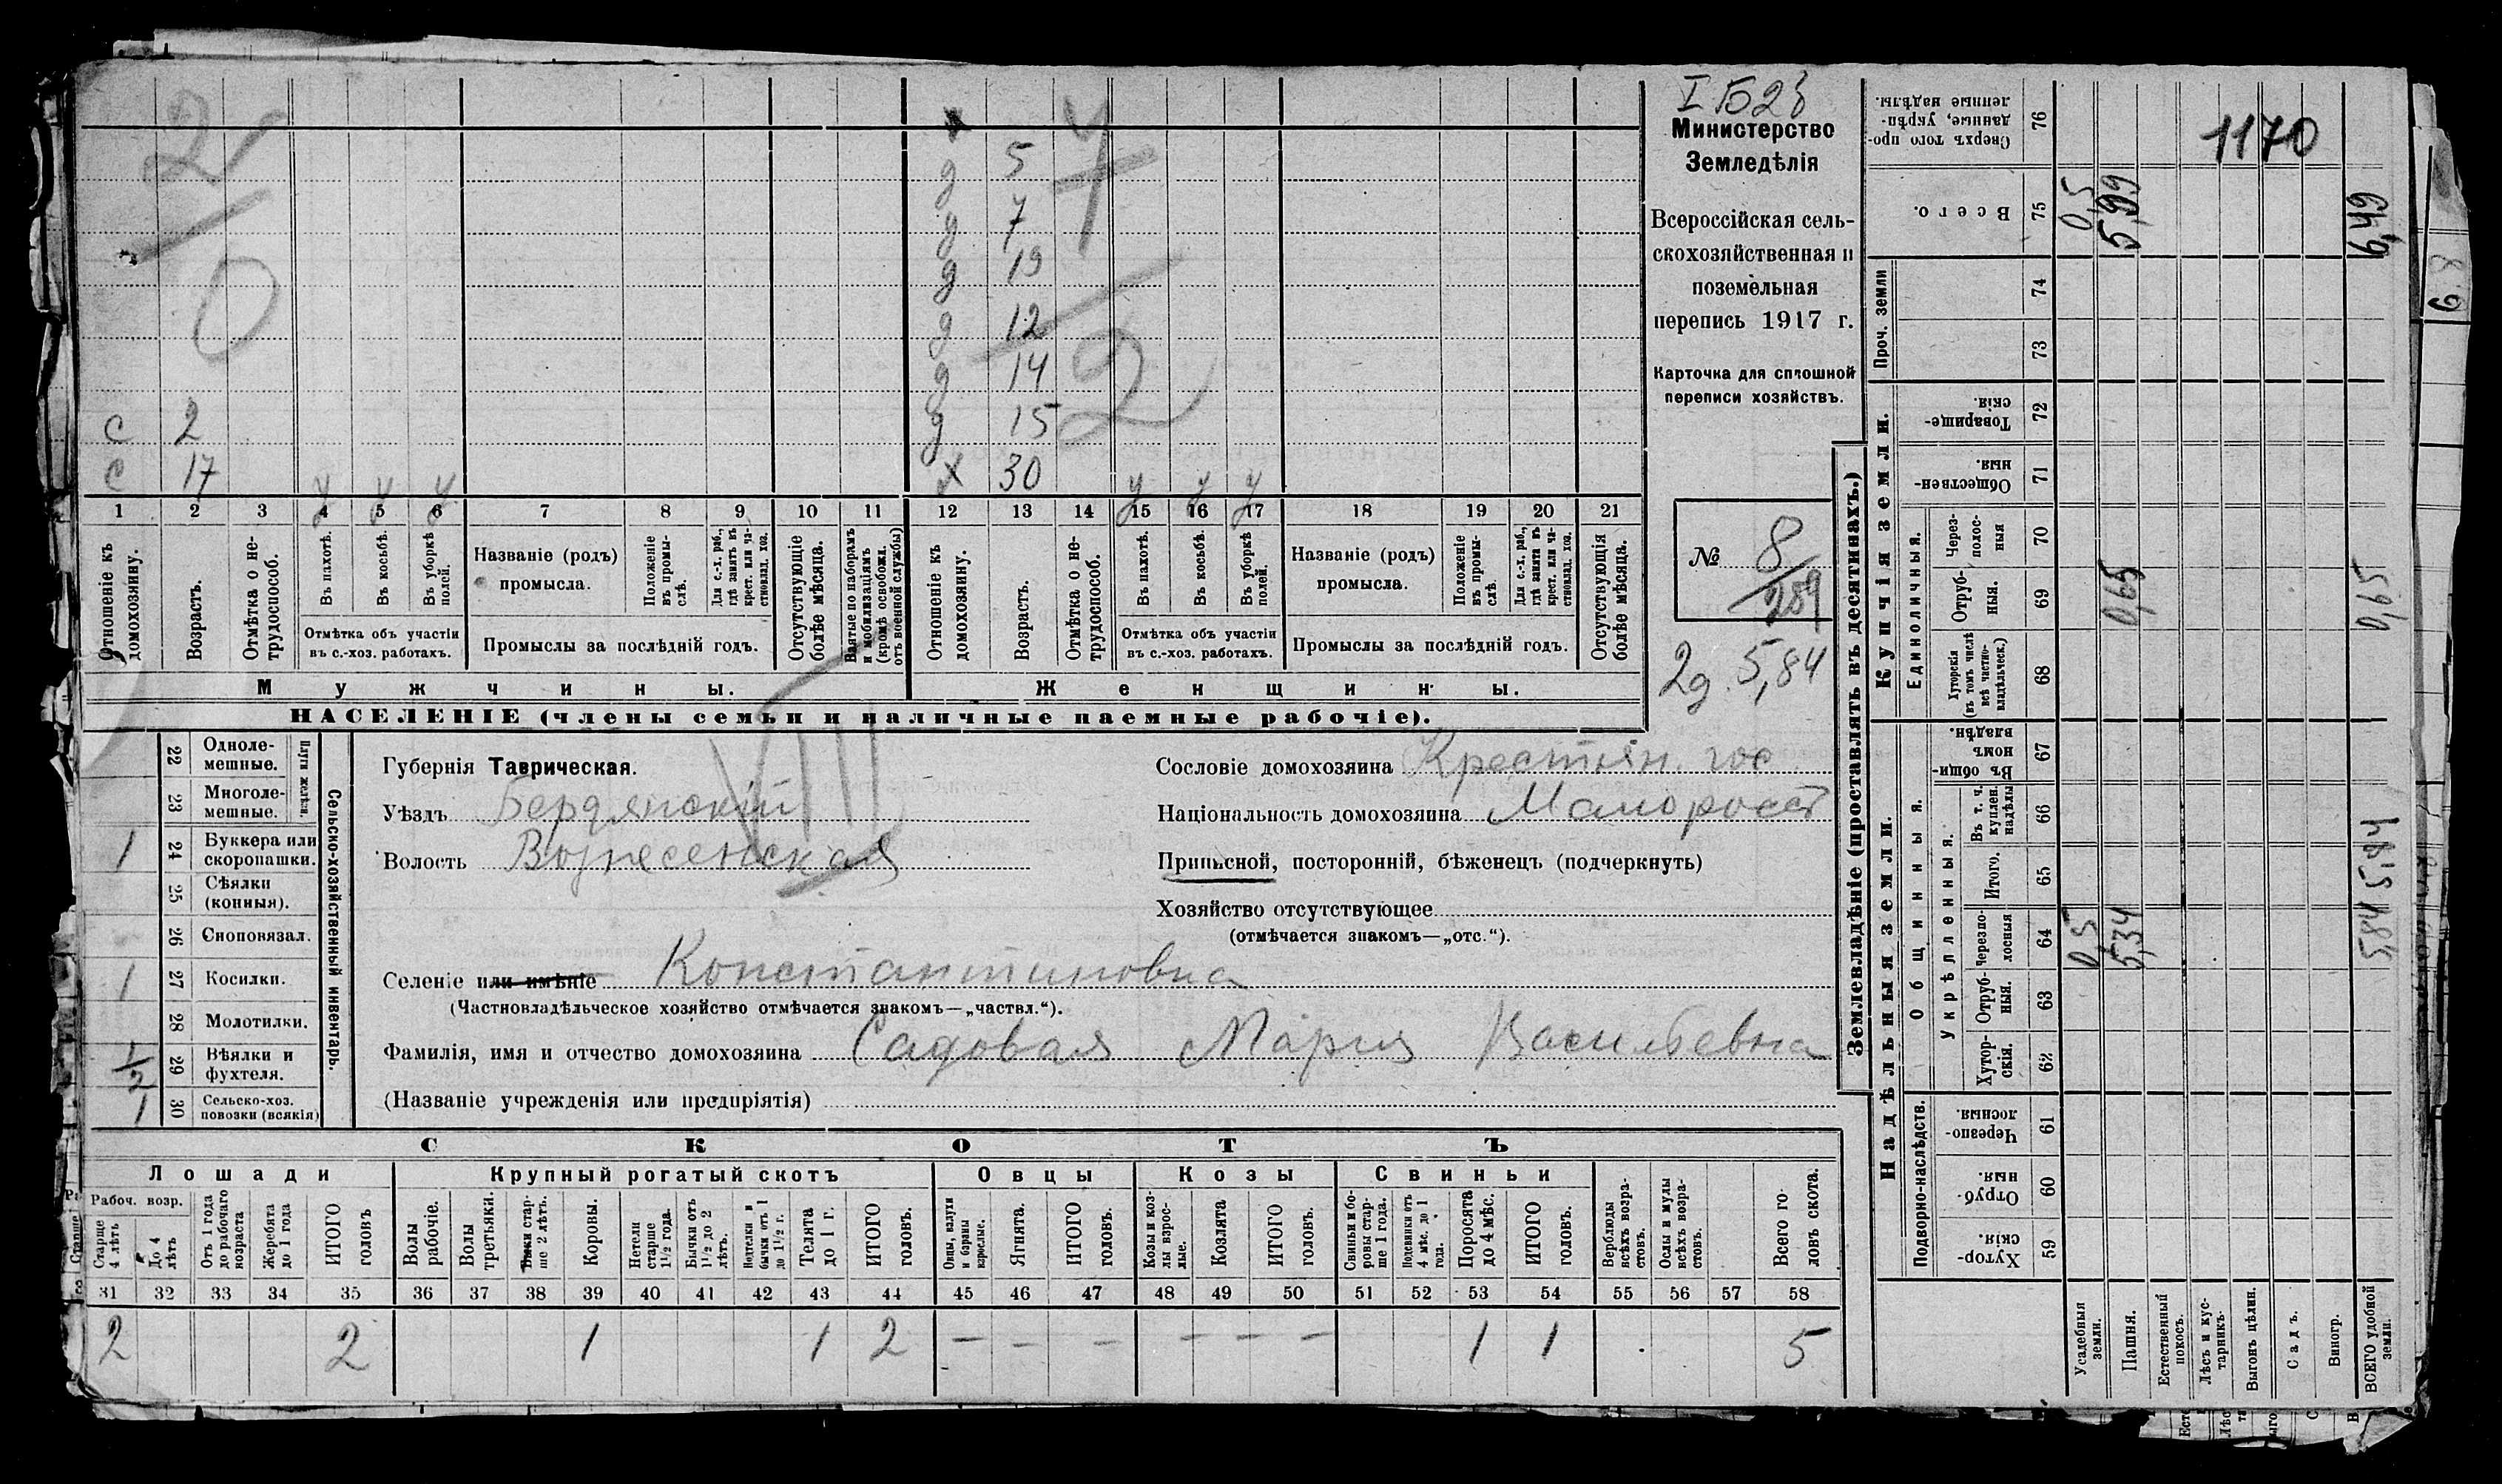 I Б 2 б
Министерство
Земледѣлія
Всероссійская сель-
скохозяйственная и
поземельная
перепись 1917 г.
Карточка для сплошной
переписи хозяйствъ.
№ 8
259
2д. 5,84
2
0
7
2
д 5
д 7
д 19
д 12
д 14
с 2 д 15
с 17 у у у х 30 у у у
1 2 3 4 5 6 7 8 9 10 11 12 13 14 15 16 17 18 19 20 21
Отношеніе къ домохозяину.
Возрастъ.
Отмѣтка о не-трудоспособ.
Въ пахотѣ.
Въ косьбѣ.
Въ уборкѣ полей.
Отмѣтка объ участіи
въ с.-хоз. работахъ.
Названіе (родъ)
промысла.
Положеніе въ промы-слѣ.
Для с.-х. раб., гдѣ занятъ въ крест. или ча-стновлад. хоз.
Промыслы за послѣдній годъ.
Отсутствующіе болѣе мѣсяца.
Взятые по наборамъ и мобилизаціямъ (кромѣ освобожд. отъ военной службы)
Отношеніе къ домохозяину.
Возрастъ.
Отмѣтка о не-трудоспособ.
Въ пахотѣ.
Въ косьбѣ.
Въ уборкѣ полей.
Отмѣтка объ участіи
въ с.-хоз. работахъ.
Названіе (родъ)
промысла.
Положеніе въ промы-слѣ.
Для с.-х. раб., гдѣ занята въ крест. или ча-стновлад. хоз.
Промыслы за послѣдній годъ.
Отсутствующія болѣе мѣсяца.
Мужчины. Женщины.
НАСЕЛЕНІЕ (члены семьи и наличные наемные рабочіе).
Сельско-хозяйственный инвентарь.
Плуги желѣзн.
22 Одноле-мешные.
23 Многоле-мешные.
1 24 Буккера или скоропашки.
25 Сѣялки (конныя).
26 Сноповязал.
1 27 Косилки.
28 Молотилки.
1/2 29 Вѣялки и фухтеля.
1 30 Сельско-хоз. повозки (всякія)
VIII
Губернія Таврическая.
Уѣздъ Бердянскій
Волость Вознесенская
Сословіе домохозяина Крестьян. гос
Національность домохозяина Малоросс
Приписной, посторонній, бѣженецъ (подчеркнуть)
Хозяйство отсутствующее
(отмѣчается знакомъ—„отс.“).
Селеніе или имѣніе Константиновка
(Частновладѣльческое хозяйство отмѣчается знакомъ—„частвл.“).
Фамилія, имя и отчество домохозяина Садовая Мария Васильевна
(Названіе учрежденія или предпріятія)
СКОТЪ
Лошади Крупный рогатый скотъ Овцы Козы Свиньи
Рабоч. возр.
Старше 4 лѣтъ
До 4 лѣтъ
Отъ 1 года до рабочаго возраста
Жеребята до 1 года
ИТОГО головъ
Волы рабочіе.
Волы третьяки.
Быки стар-ше 2 лѣтъ.
Коровы.
Нетели старше 1½ года.
Бычки отъ 1½ до 2 лѣтъ.
Нетелки и бычки отъ 1 до 1½ г.
Телята до 1 г.
ИТОГО головъ.
Овцы, валухи и бараны взрослые.
Ягнята.
ИТОГО головъ.
Козы и коз-лы взрос-лые.
Козлята
ИТОГО головъ.
Свиньи и бо-ровы стар-ше 1 года.
Подсвинки отъ 4 мѣс. до 1 года.
Поросята до 4 мѣс.
ИТОГО головъ.
Верблюды всѣхъ возра-стовъ.
Ослы и мулы всѣхъ возра-стовъ.
Всего го-ловъ скота.
31 32 33 34 35 36 37 38 39 40 41 42 43 44 45 46 47 48 49 50 51 52 53 54 55 56 57 58
2 2 1 1 2 — — — — — — 1 1 5
Землевладѣніе (проставлять въ десятинахъ.)
Надѣльныя земли. Купчія земли.
Подворно-наслѣдств.
Общинныя.
Укрѣпленныя.
Единоличныя.
Проч. земли
Хутор-скія. 59
Отруб-ныя. 60
Черезпо-лосныя. 61
Хутор-скія. 62
Отруб-ныя. 63
Черезпо-лосныя 64 0,5 5,34 5,84
Итого. 65 5,84
Въ т. ч. куплен. надѣлы 66
Въ общи-номъ владѣн. 67
Хуторскія (въ томъ числѣ всѣ частно-владѣльческ.) 68
Отруб-ныя. 69 0,65 0,65
Через-полос-ныя 70
Обществен-ныя. 71
Товарище-скія. 72
73
74
Всего. 75 0,5 5,99 6,49
Сверхъ того про-данные, укрѣп-ленные надѣлы. 76
1170
Усадебныя земли.
Пашня.
Естественный покосъ.
Лѣсъ и кус-тарникъ.
Выгонъ цѣлин.
Садъ.
Виногр.
ВСЕГО удобной земли.